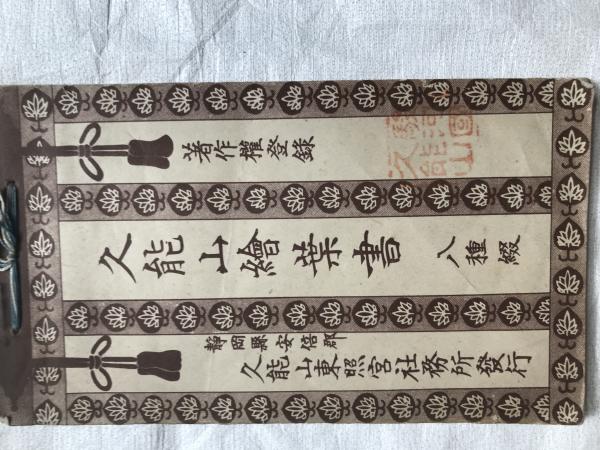 著作權登錄
久能山繪葉書 八種綴
靜岡縣安倍郡
久能山東照宮社務所發行